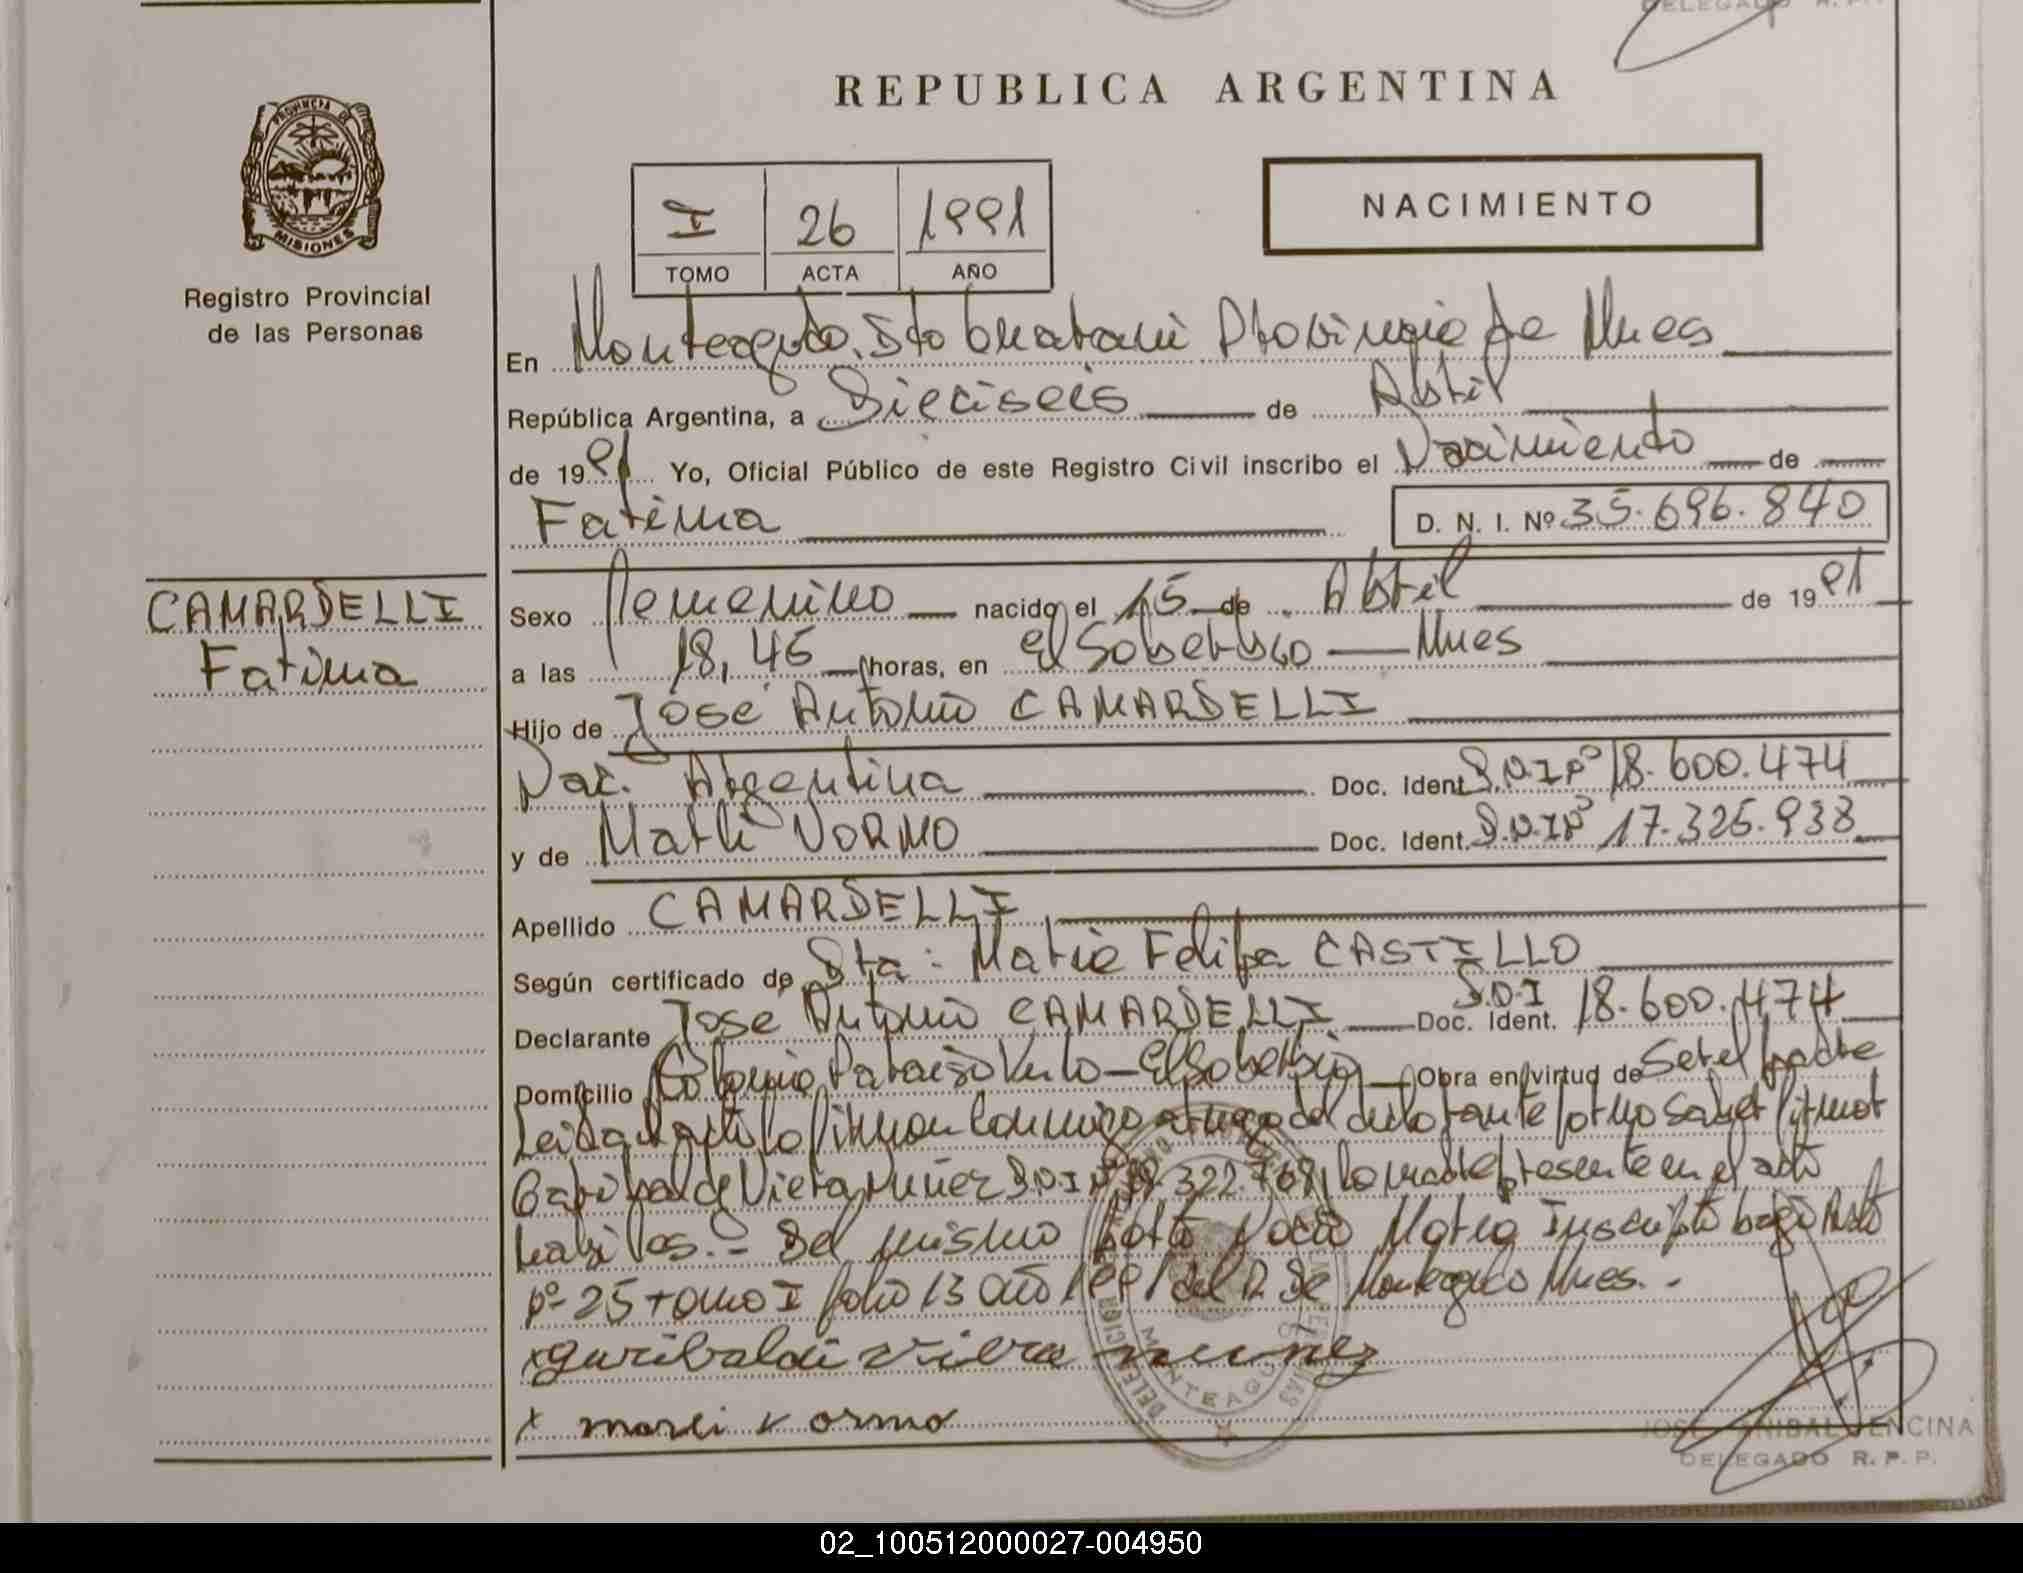 DELEGADO R. P. P.
REPUBLICA ARGENTINA
PROVINCIA DE
MISIONES
Registro Provincial
de las Personas
I 26 1991
TOMO ACTA AÑO
NACIMIENTO
En Monteagudo, Dto Guarani Provincia de Mnes
República Argentina, a Dieciseis de Abril
de 1991 Yo, Oficial Público de este Registro Civil inscribo el Nacimiento de
Fatima D. N. I. Nº 35.696.840
CAMARDELLI
Fatima
Sexo femenino nacido el 15 de Abril de 1991
a las 18,45 horas, en El Soberbio Mnes
Hijo de José Antonio CAMARDELLI
Nac. Argentina Doc. Ident. D.N.I Nº 18.600.474
y de Marli VORMO Doc. Ident. D.N.I Nº 17.326.938
Apellido CAMARDELLI
Según certificado de Dta: Maria Felipa CASTILLO
Declarante Jose Antonio CAMARDELLI Doc. Ident. D.N.I 18.600.474
Domicilio Colonia Paraiso Km 10 - El Soberbio Obra en virtud de Ser el padre
Leida el acta lo firman conmigo a ruego del declarante por no saber firmar
de Viera Nuñez D.N.I Nº 322.768, la madre presente en el acto
Del mismo parto nacio Inscripto bajo Acta
nº 25 tomo I folio 13 año 1991 del R de Monteagudo Mnes. -
x garibaldi viera nunez
x marli vormo
MONTEAGUDO
JOSE ANIBAL ENCINA
DELEGADO R. P. P.
02_100512000027-004950